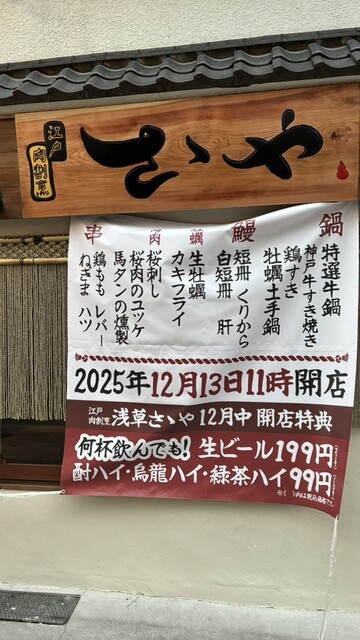 江戸
肉割烹
さゝや
鍋
特選牛鍋
神戸牛すき焼き
鶏すき
牡蠣土手鍋
鰻
短冊 くりから
白短冊 肝
牡蠣
生牡蠣
カキフライ
肉
桜刺し
桜肉のユッケ
馬タンの燻製
串
鶏もも レバー
ねぎま ハツ
2025年12月13日11時開店
江戸
肉割烹
浅草さゝや 12月中 開店特典
何杯飲んでも! 生ビール199円
酎ハイ・烏龍ハイ・緑茶ハイ99円
※( )内は税込価格です。